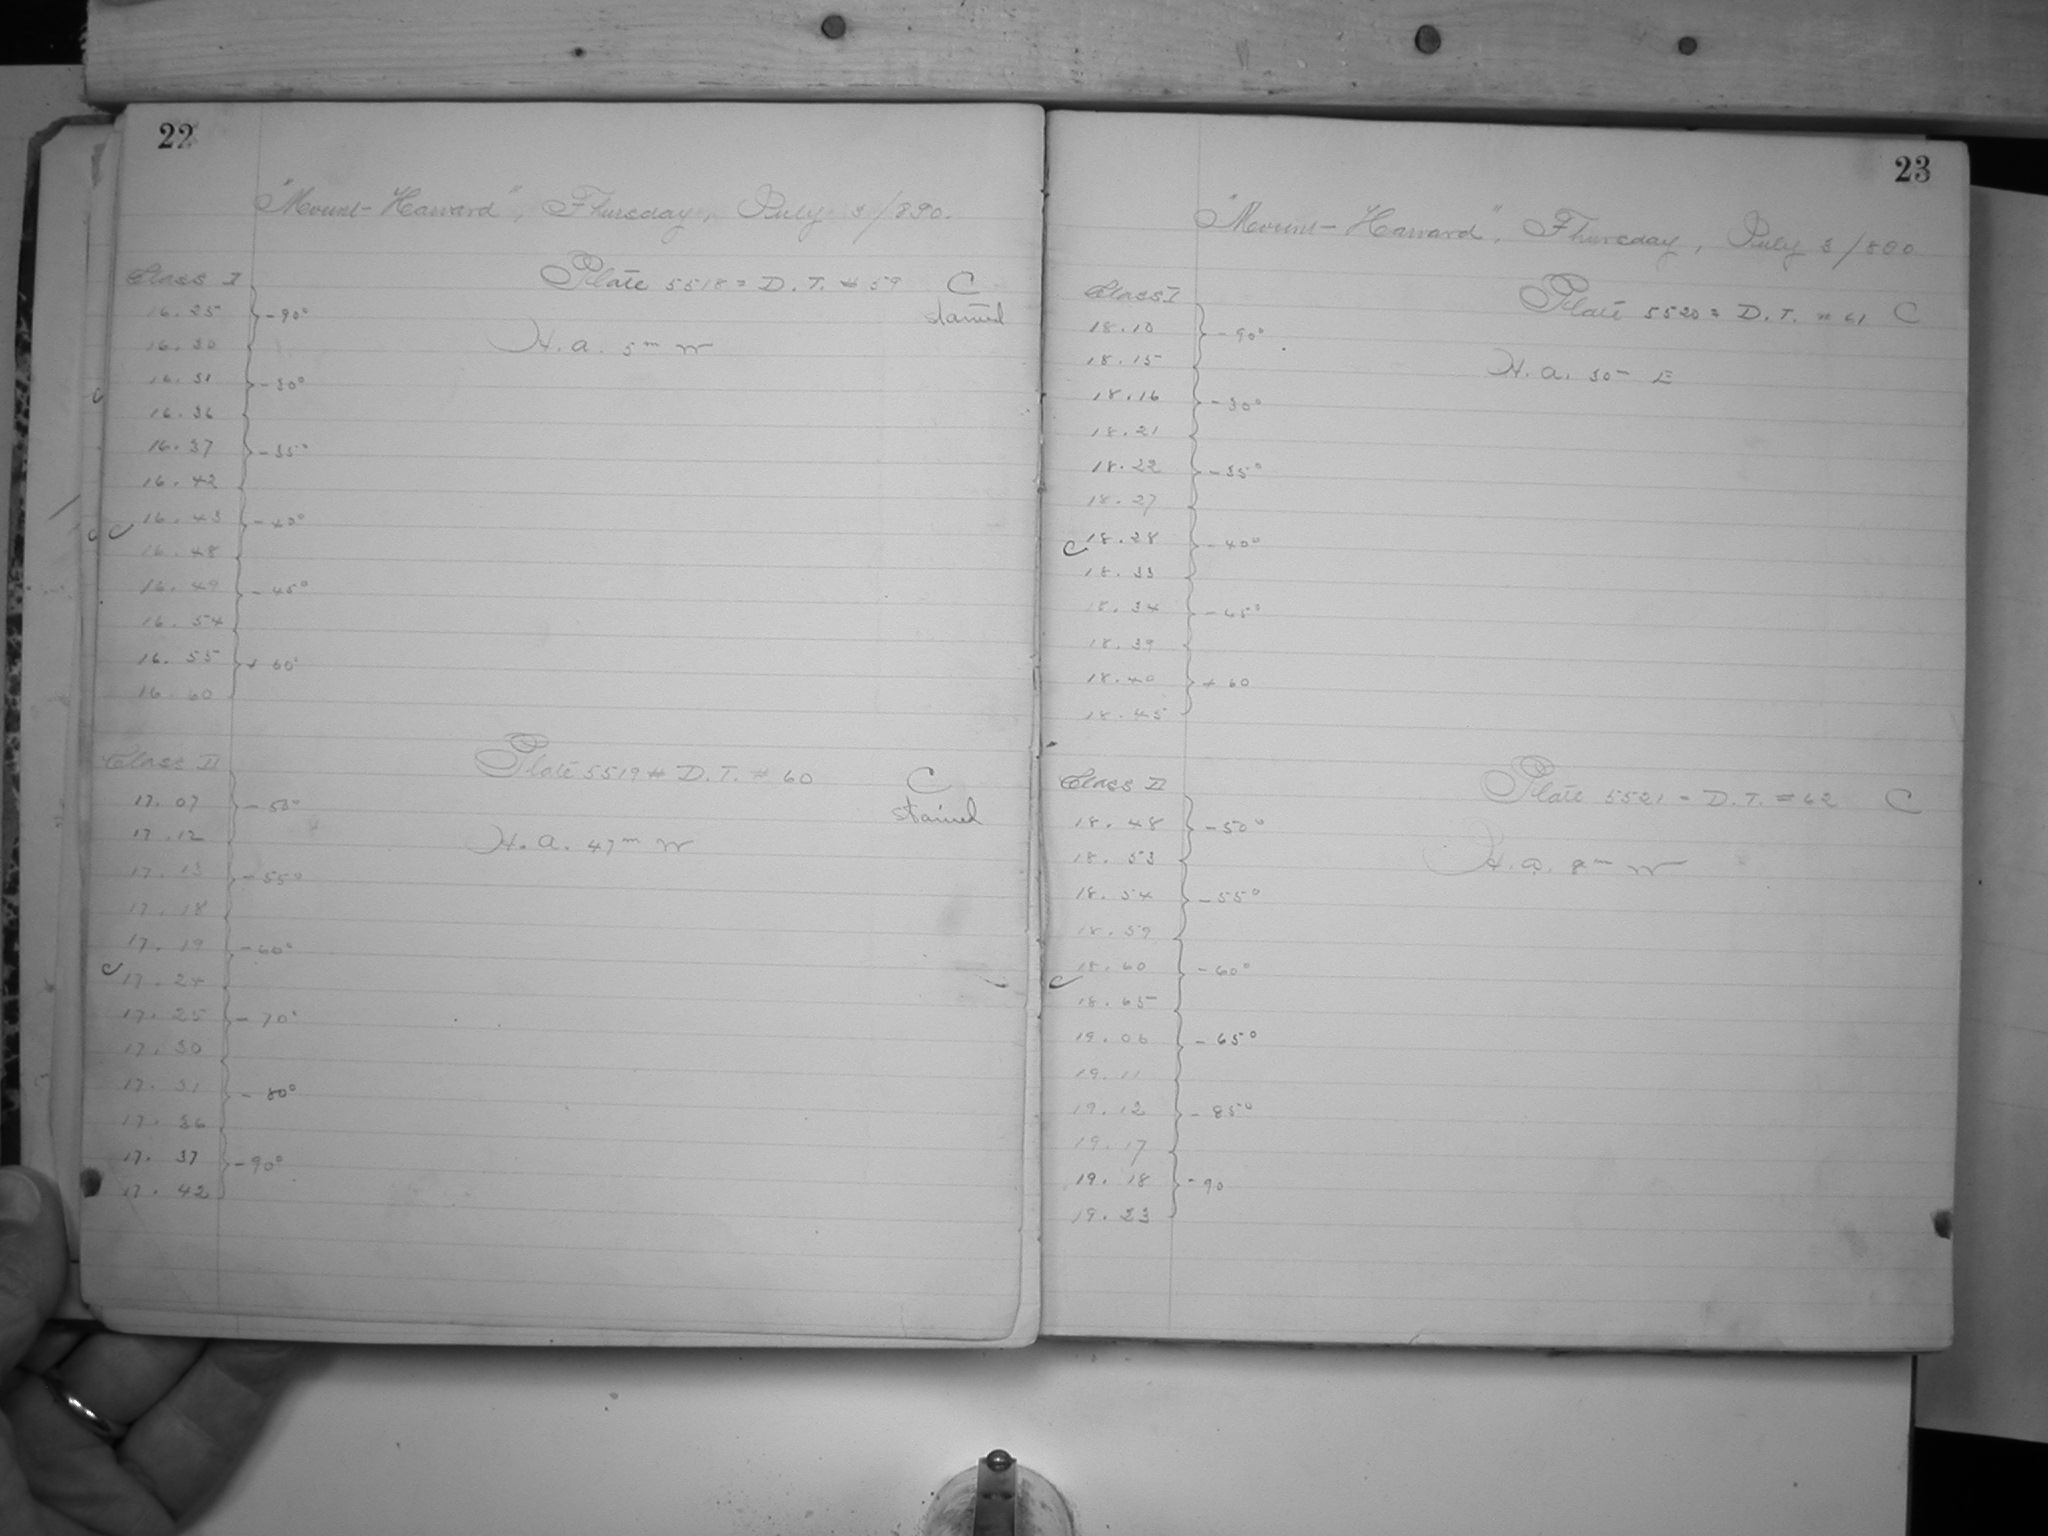 22
"Mount-Harvard", Thursday, July 3/890.
Class I
Plate 5518 = D. T. # 59 C
stained
H. a. 5m W
16. 25
16. 30
} -90°
16. 31
16. 36
} -30°
16. 37
16. 42
} -35°
16. 43
16. 48
} -40°
16. 49
16. 54
} -45°
16. 55
16. 60
} + 60°
Class II
Plate 5519 = D. T. # 60 C
stained
H. a. 47m W
17. 07
17. 12
} -50°
17. 13
17. 18
} -55°
17. 19
17. 24
} -60°
17. 25
17. 30
} -70°
17. 31
17. 36
} -80°
17. 37
17. 42
} -90°
23
"Mount-Harvard", Thursday, July 3/890
Class I
Plate 5520 = D. T. # 61 C
H. a. 30m E
18. 10
18. 15
} -90°
18. 16
18. 21
} -30°
18. 22
18. 27
} -35°
18. 28
18. 33
} -40°
18. 34
18. 39
} -45°
18. 40
18. 45
} + 60
Class II
Plate 5521 = D. T. # 62 C
H. a. 8m W
18. 48
18. 53
} -50°
18. 54
18. 59
} -55°
18. 60
18. 65
} -60°
19. 06
19. 11
} -65°
19. 12
19. 17
} -85°
19. 18
19. 23
} -90